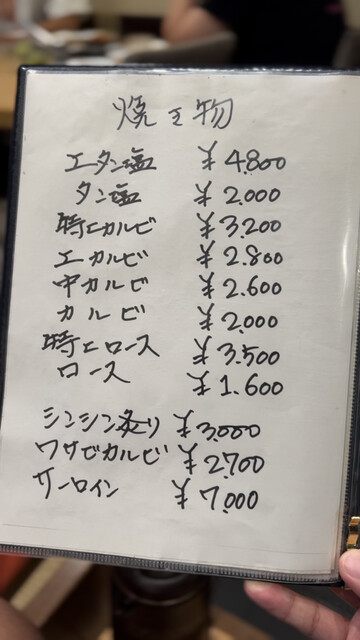 焼き物
上タン塩 ¥4.800
タン塩 ¥2.000
特上カルビ ¥3.200
上カルビ ¥2.800
中カルビ ¥2.600
カルビ ¥2.000
特上ロース ¥3.500
ロース ¥1.600
シンシン炙り ¥3.000
ワサビカルビ ¥2.700
サーロイン ¥7.000